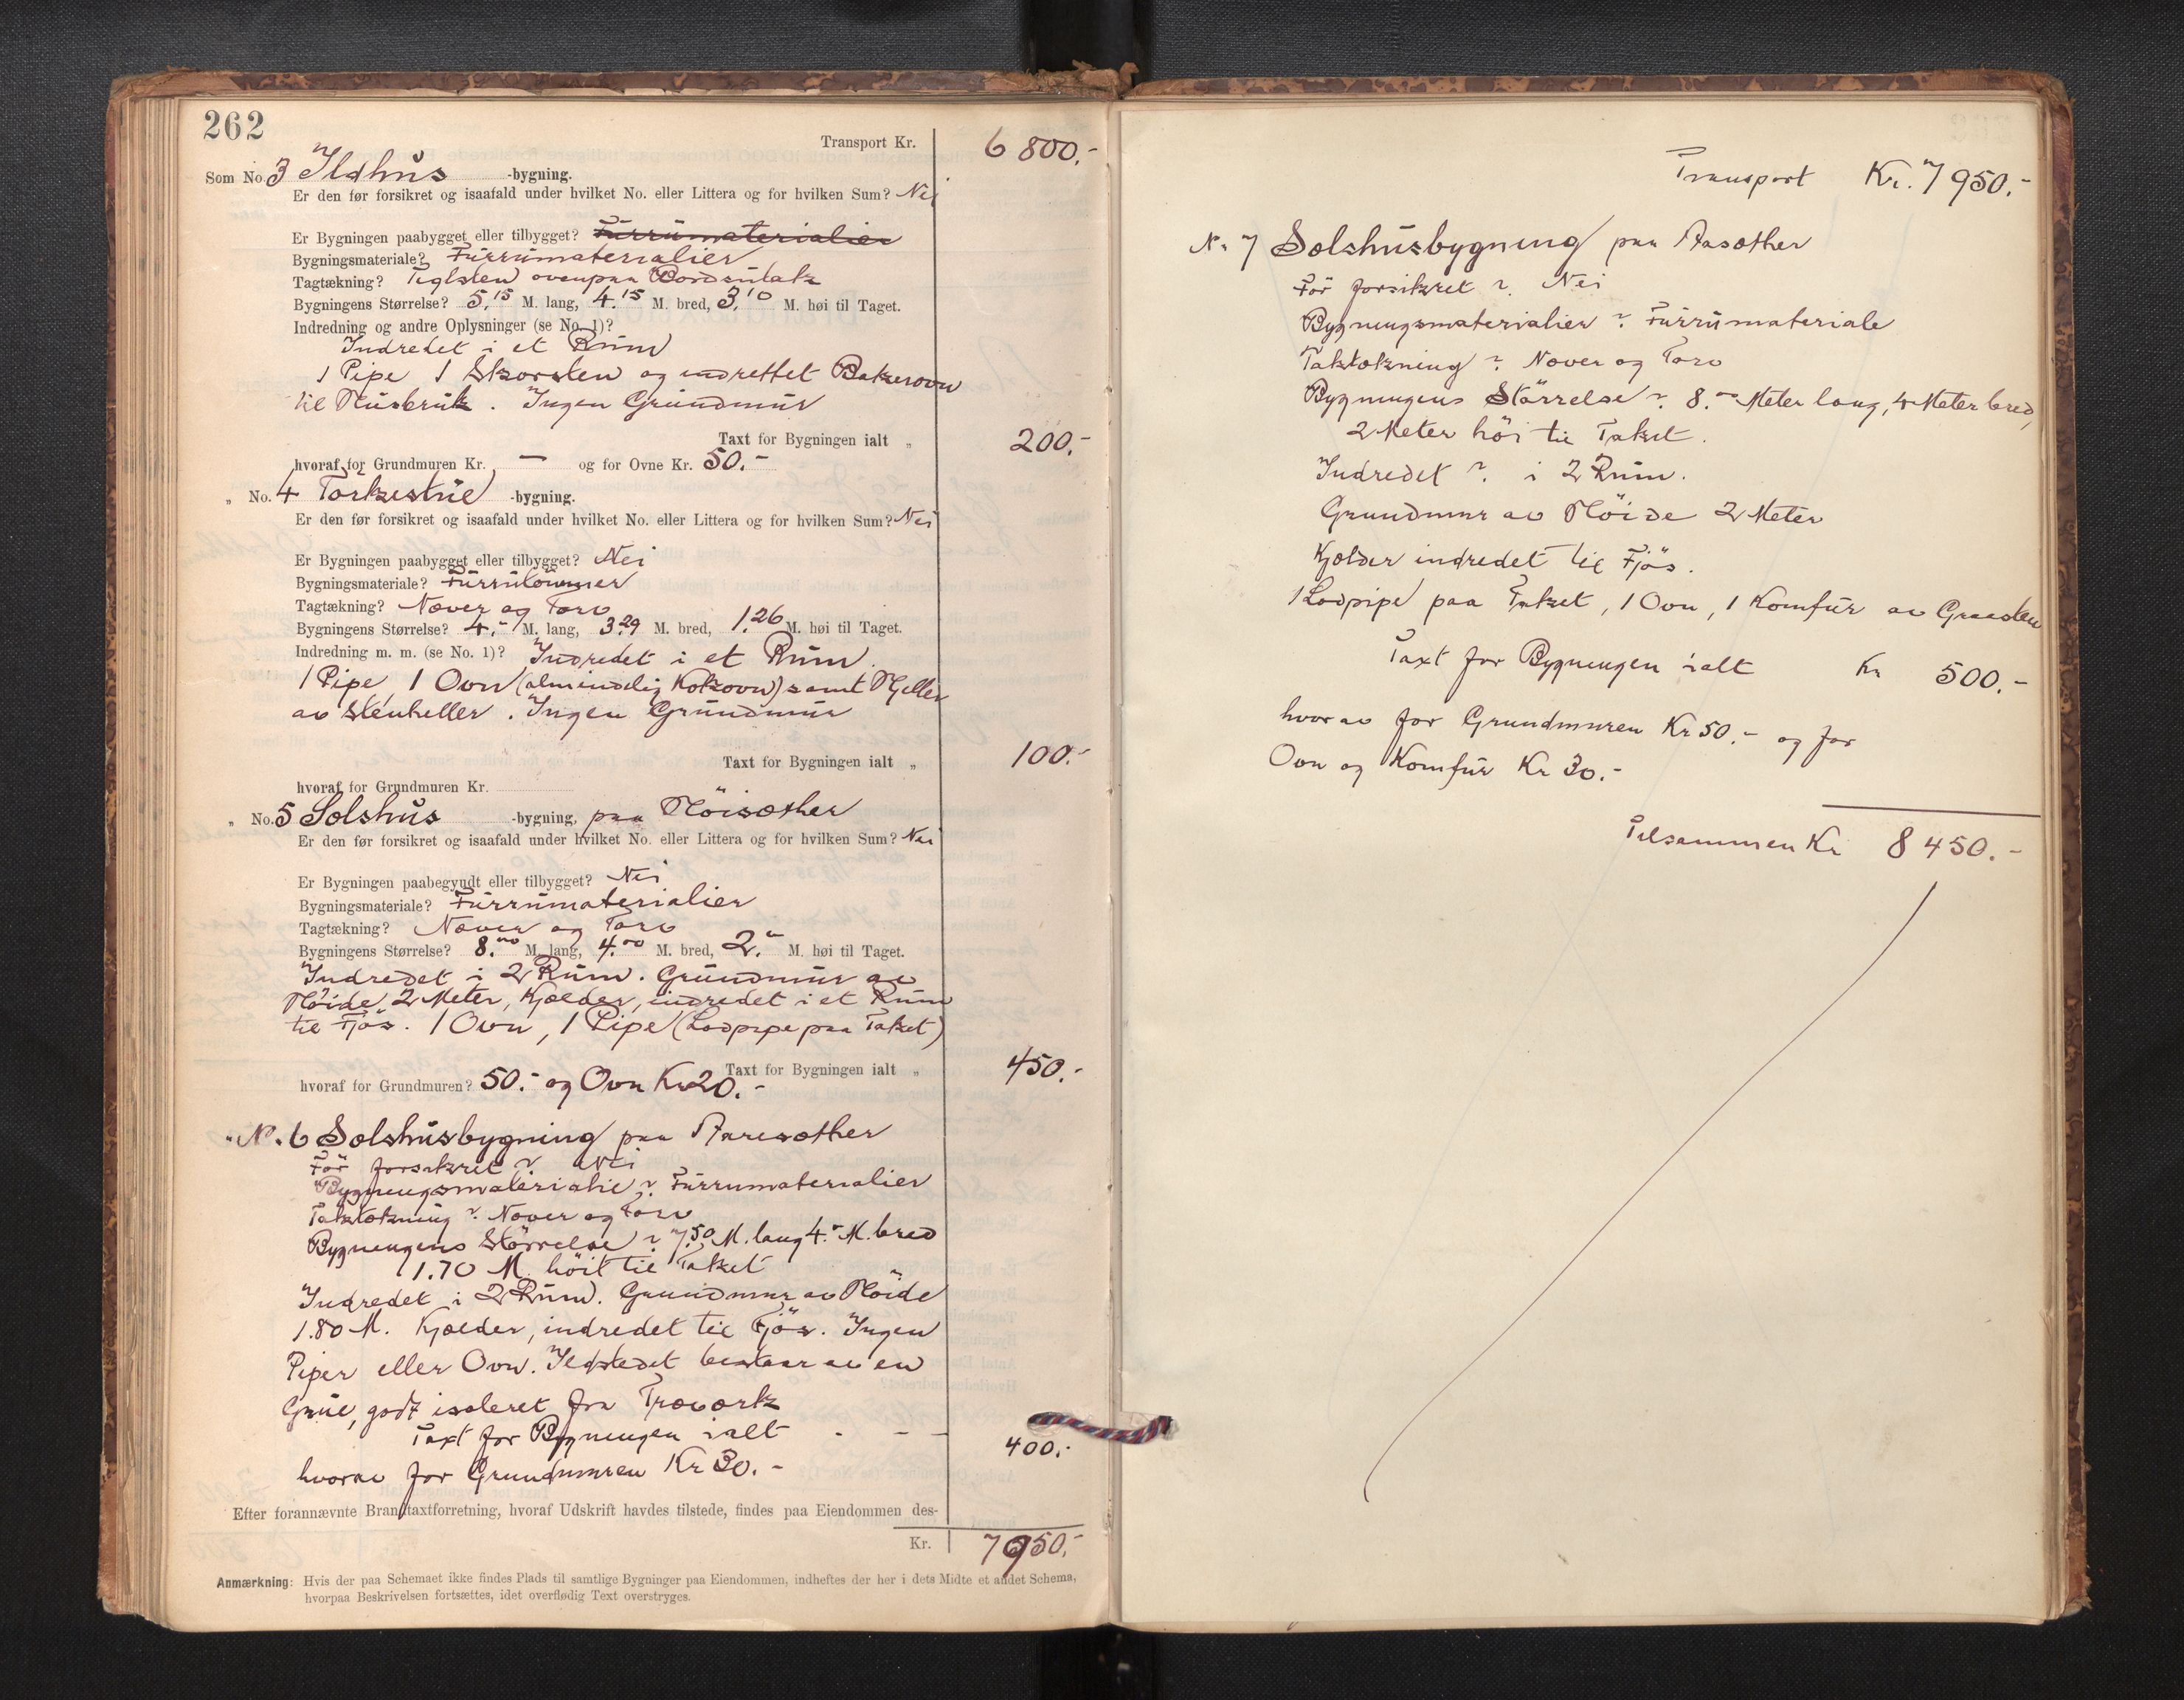 262
Transport Kr. 6 800.-
Som No. 3 Ildhus -bygning.
Er den før forsikret og isaafald under hvilket No. eller Littera og for hvilken Sum? Nei
Er Bygningen paabygget eller tilbygget? Furrumaterialier
Bygningsmateriale? Furrumaterialier
Tagtækning? Teglsten ovenpaa Bordsutak
Bygningens Størrelse? 5,15 M. lang, 4.15 M. bred, 3,10 M. høi til Taget.
Indredning og andre Oplysninger (se No. 1)?
Indredet i et Rum
1 Pipe 1 Skorsten og indrettet Bakerovn
til Husbruk. Ingen Grundmur
Taxt for Bygningen ialt „ 200.-
hvoraf for Grundmuren Kr. — og for Ovne Kr. 50.-
„ No. 4 Törkestue -bygning.
Er den før forsikret og isaafald under hvilket No. eller Littera og for hvilken Sum? Nei
Er Bygningen paabygget eller tilbygget? Nei
Bygningsmateriale? Furrutömmer
Tagtækning? Næver og Torv
Bygningens Størrelse? 4.- M. lang, 3.29 M. bred, 1.26 M. høi til Taget.
Indredning m. m. (se No. 1)? Indredet i et Rum.
1 Pipe, 1 Ovn (almindelig Kokovn) samt Hjeller
av Stenheller. Ingen Grundmur
Taxt for Bygningen ialt „ 100.-
hvoraf for Grundmuren Kr.
„ No. 5 Sælshus -bygning, paa Höisæther
Er den før forsikret og isaafald under hvilket No. eller Littera og for hvilken Sum? Nei
Er Bygningen paabegyndt eller tilbygget? Nei
Bygningsmateriale? Furrumaterialier
Tagtækning? Næver og Torv
Bygningens Størrelse? 8.00 M. lang, 4.00 M. bred, 2." M. høi til Taget.
Indredet i 2 Rum. Grundmur av
Höide 2 Meter, Kjælder, indredet i et Rum
til Fjös. 1 Ovn, 1 Pipe (Lodpipe paa Taket)
Taxt for Bygningen ialt „ 450.-
hvoraf for Grundmuren? 50.- og Ovn Kr 20.-
„ No. 6 Sælshusbygning paa Aaresæther
För forsikret? Nei
Bygningsmaterialie? Furrumaterialier
Taktækning? Næver og Torv
Bygningens Störrelse? 7.50 M. lang 4.- M. bred
1.70 M. höit til Taket
Indredet i 2 Rum. Grundmur av Höide
1.80 M. Kjælder, indredet til Fjös. Ingen
Piper eller Ovn. Ildstedet bestaar av en
Grue, godt isoleret fra Træværk
Taxt for Bygningen ialt - - - 400.-
hvorav for Grundmuren Kr 30.-
Efter forannævnte Brandtaxtforretning, hvoraf Udskrift havdes tilstede, findes paa Eiendommen des-
Kr. 7950.-
Anmærkning: Hvis der paa Schemaet ikke findes Plads til samtlige Bygninger paa Eiendommen, indheftes der her i dets Midte et andet Schema,
hvorpaa Beskrivelsen fortsættes, idet overflødig Text overstryges.
Transport Kr. 7 950.-
No 7 Sælshusbygning paa Aasæther
För forsikret? Nei
Bygningsmaterialier? Furrumateriale
Taktækning? Næver og Torv
Bygningens Störrelse? 8.00 Meter lang, 4 Meter bred,
2 Meter höi til Taket.
Indredet? i 2 Rum.
Grundmur av Höide 2 Meter
Kjælder indredet til Fjös.
1 Lodpipe paa Taket, 1 Ovn, 1 Komfur av Graasten
Taxt for Bygningen ialt Kr 500.-
hvorav for Grundmuren Kr 50.- og for
Ovn og Komfur Kr 30.-
Tilsammen Kr 8 450.-